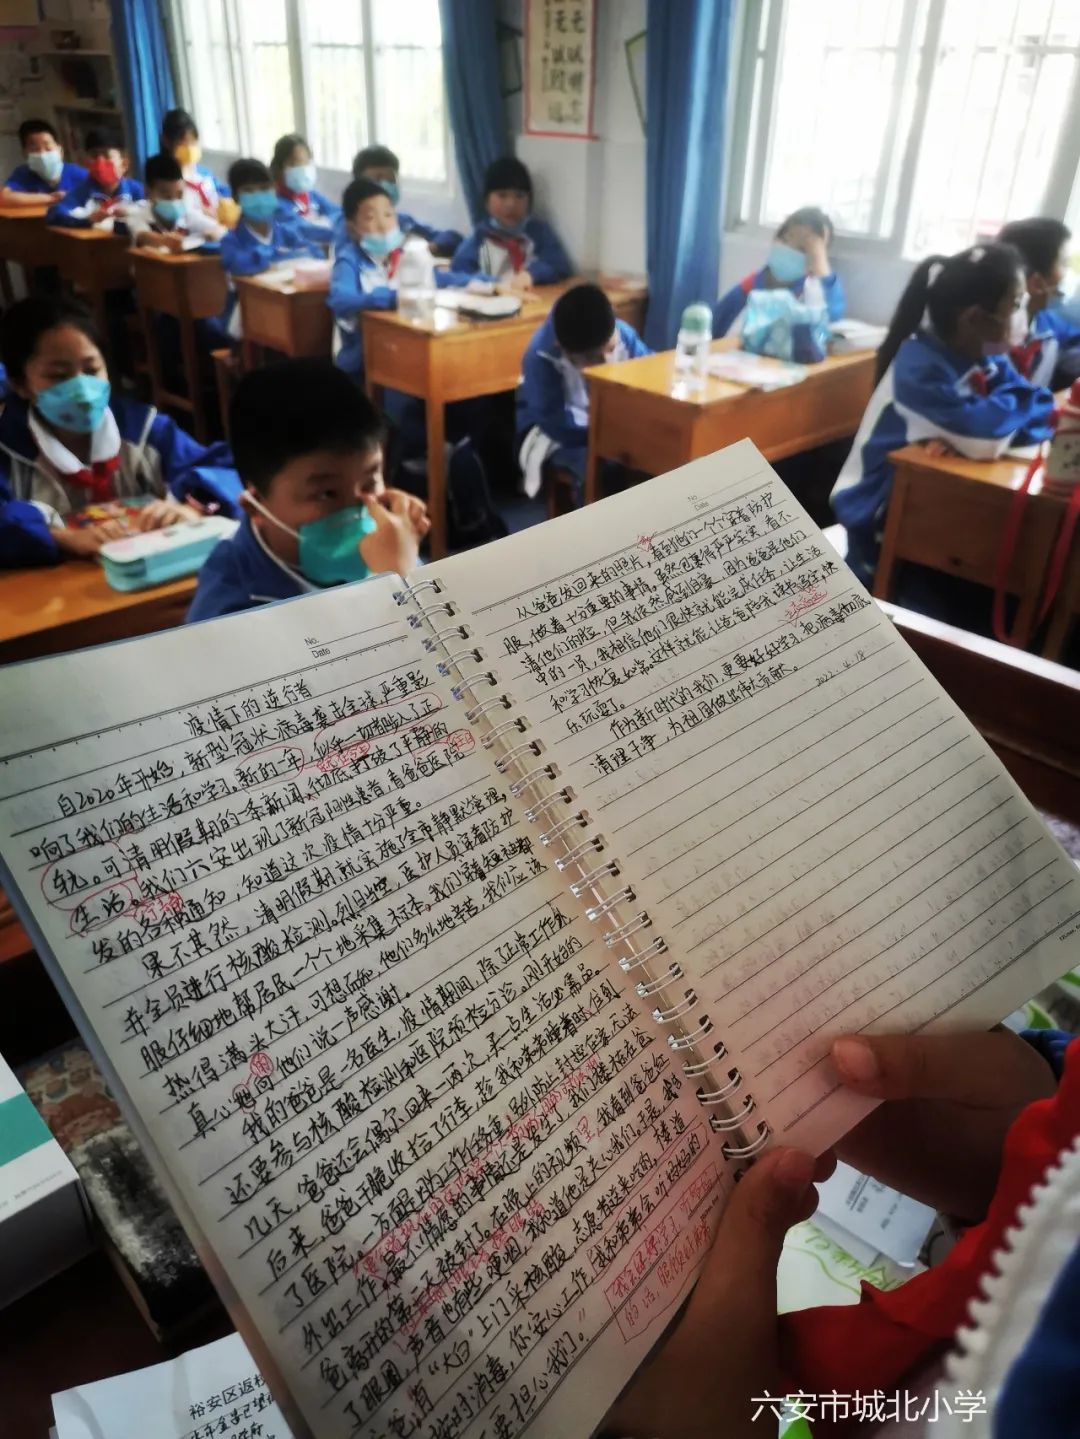 No.
Date
疫情下的逆行者
自2020年开始,新型冠状病毒袭击全球,严重影
响了我们的生活和学习。新的一年,似乎一切都步入了正
轨。可清明假期的一条新闻,彻底打破了平静的
生活。我们六安出现了新冠阳性患者,看爸爸医院
发的各种通知,知道这次疫情十分严重。
果不其然,清明假期就实施了全市静默管理,
并全员进行核酸检测。烈日当空,医护人员穿着防护
服仔细地帮居民一个个地采集标本。我们穿着短袖都
热得满头大汗,可想而知,他们多么地辛苦,我们应该
真心的向他们说一声感谢。
我的爸爸是一名医生,疫情期间,除了正常工作外
还要参与核酸检测和医院预检分诊。刚开始的
几天,爸爸还会偶尔回来一两次,买一点生活必需品。
后来,爸爸干脆收拾了行李,趁我和弟弟睡着时,住到
了医院。一方面是他的工作任务重,另外防止封控在家,无法
外出工作。最不情愿的事情还是发生了,我们楼栋在爸
爸离开的第二天被封了。在晚上的视频里,我看到爸爸红
了眼圈,声音也有些哽咽,我知道他是关心我们。于是,我告
有“大白”上门采核酸,志愿者送来吃的,楼道
时消毒,你安心工作,我和弟弟会听妈妈的
要担心我们。”
No.
Date
从爸爸发回来的照片,看到他们一个个穿着防护
服,做着十分重要的事情。虽然包裹得严严实实,看不
清他们的脸,但我依然感到自豪,因为爸爸是他们
中的一员,我相信他们很快就能完成任务,让生活
和学习恢复如常。这样就能让爸爸陪我读书写字,快
乐玩耍了。
作为新时代的我们,更要好好学习,把病毒彻底
清理干净,为祖国做出伟大贡献。
2022.4.18
裕安区返校
六安市城北小学